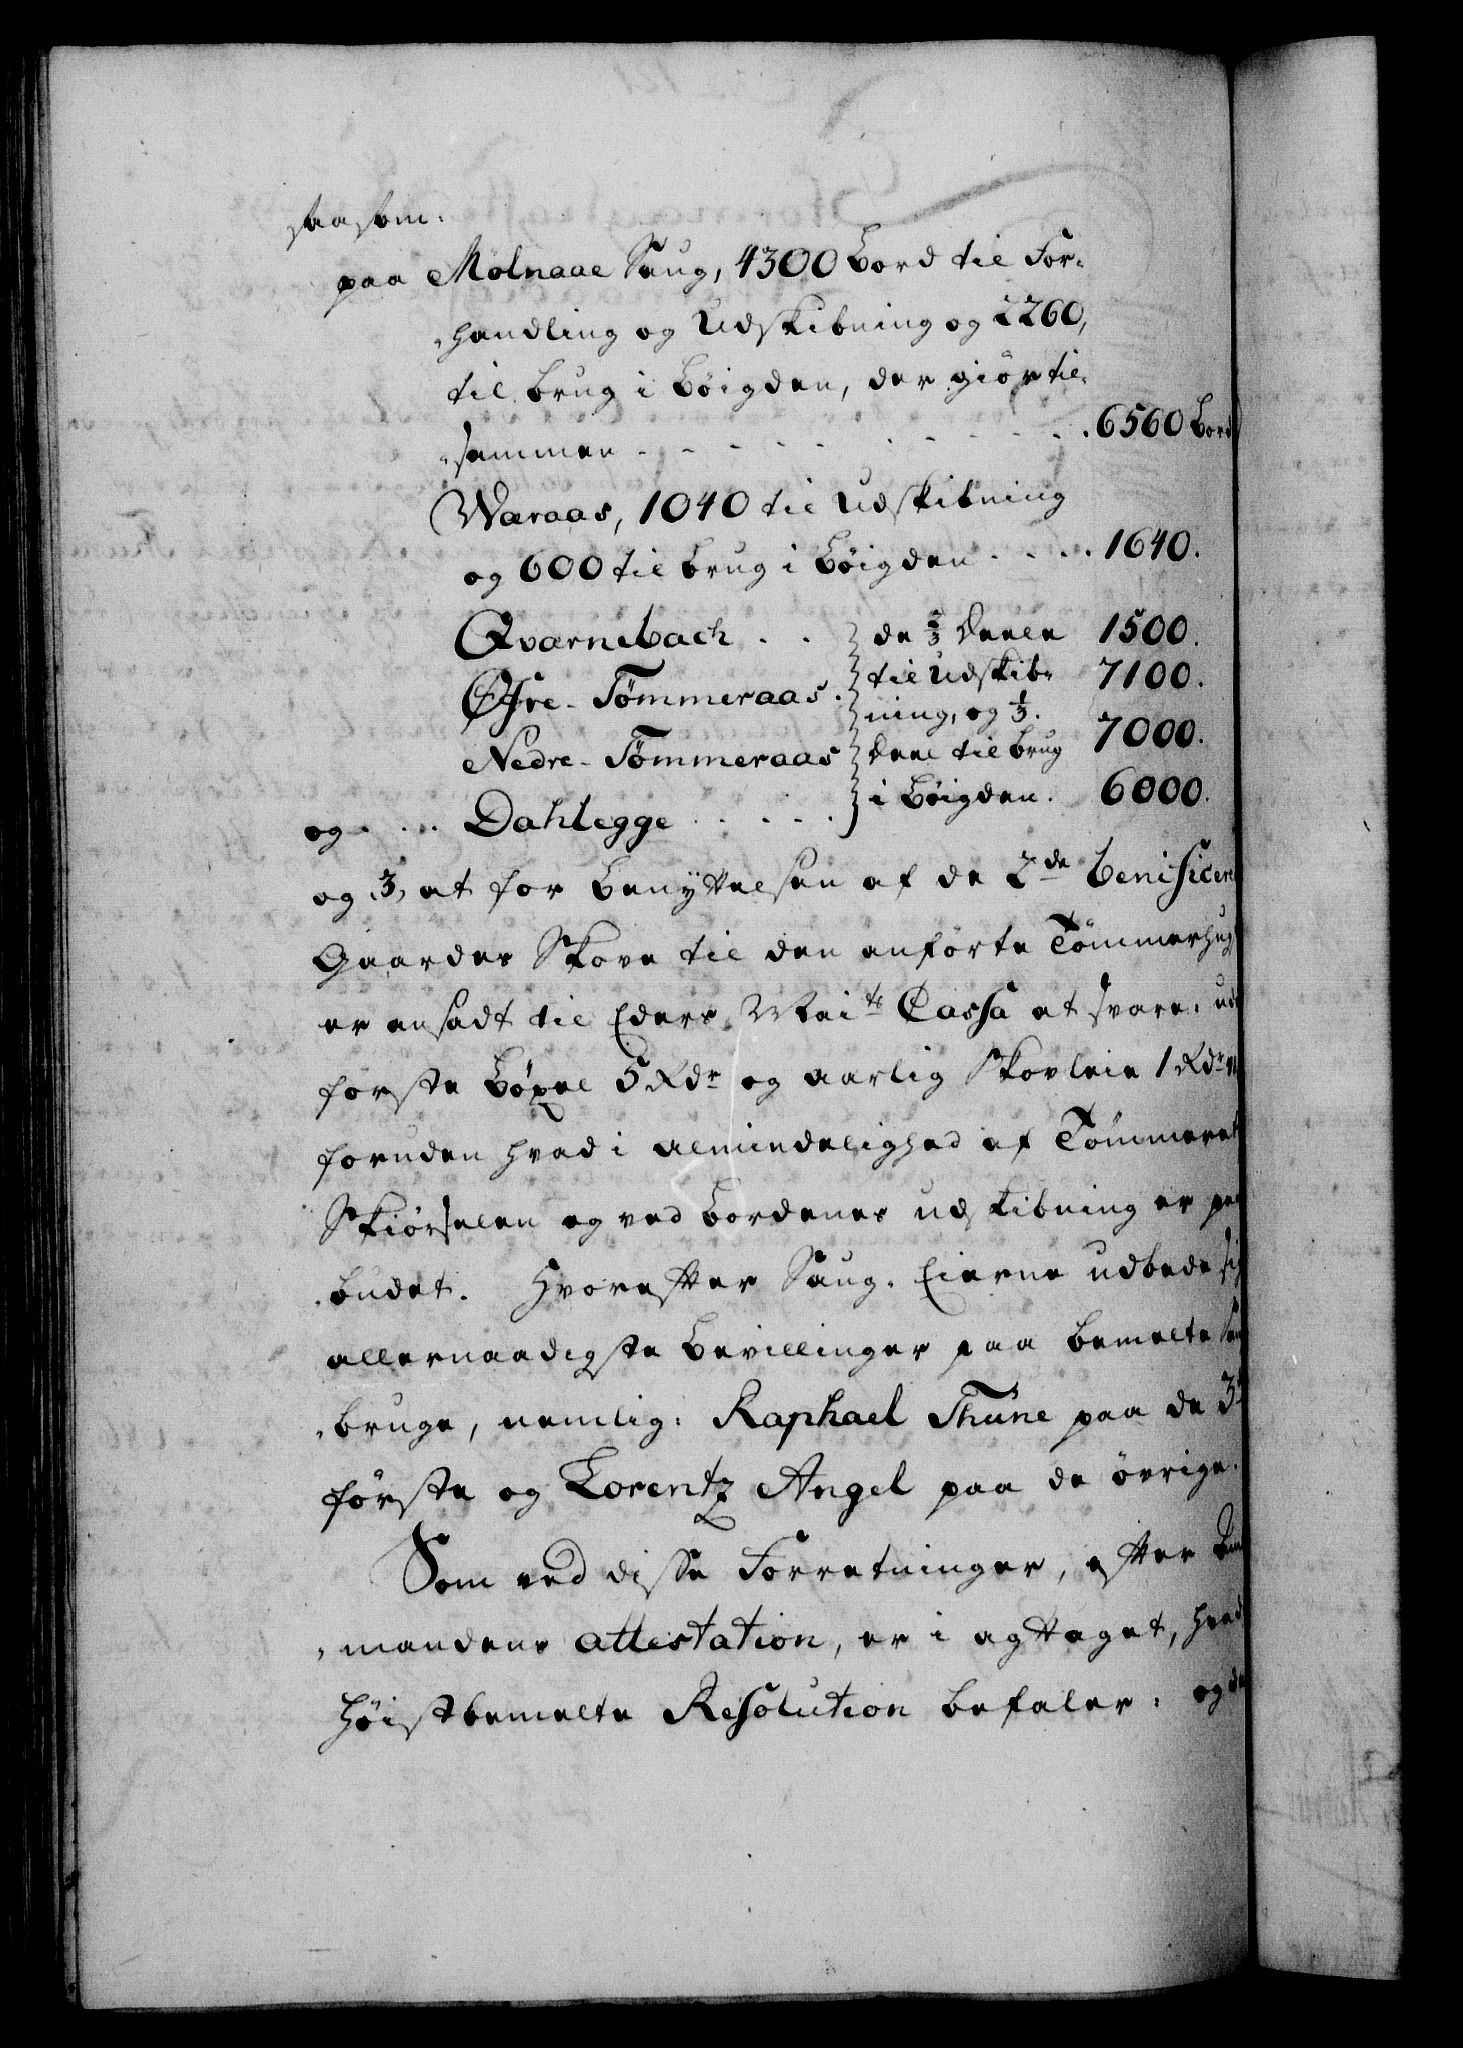 saasom:
paa Mølnaae Saug, 4300 Bord til For-
handling og Udskibning og 2260,
til brug i Bøigden, der giør til-
sammen - - - - - - - - 6560 Bord
Wæraas, 1040 til Udskibning
og 600 til brug i Bøigden . . . . 1640.
Qværnebach . . de 2/3 Deele 1500.
Øfre-Tømmeraas . til Udskib- 7100.
ning, og 1/3.
Nedre-Tømmeraas Deel til brug 7000.
og . . . Dahlegge . . . . . i Bøigden. 6000.
og 3, at for Benyttelsen af de 2de beneficered
Gaarders Skove til den anførte Tømmerhug
er ansadt til Eders Mai:ts Cassa at svare, udi
første Bøxel 5 Rdr og aarlig Skovleie 1 Rdr
foruden hvad i almindelighed af Tømmerets
Skiørselen og ved Bordenes udskibning er paa
budet. Hvorefter Saug-Eierne udbede sig
allernaadigste Bevillinger paa bemelte Saug
bruge, nemlig: Raphael Thüne paa de 3de
første og Lorentz Angel paa de øvrige.
Som ved disse Forretninger, efter
mandens attestation, er i agttaget, hvad
høistbemelte Resolution befaler, og da